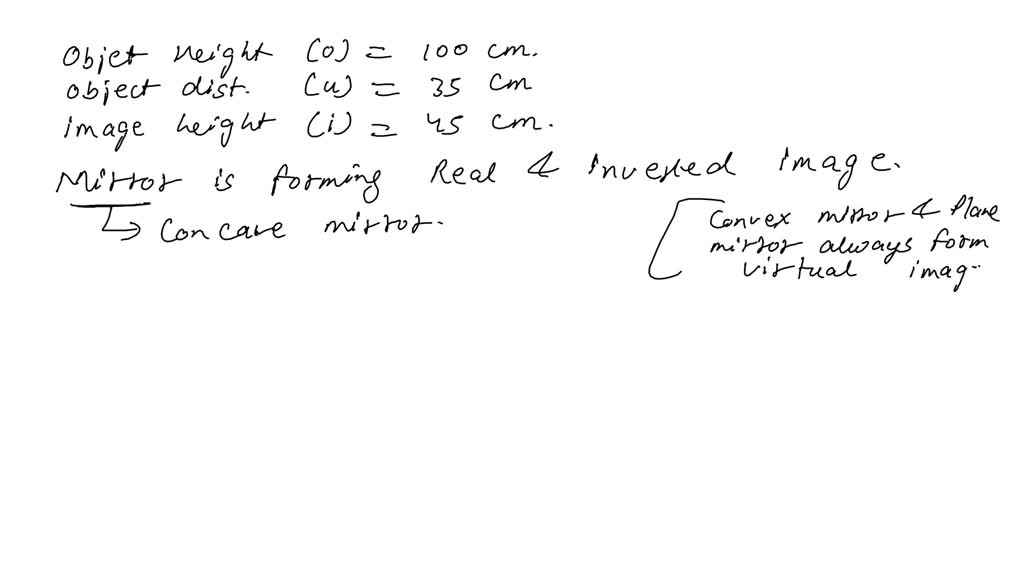 Objet height (o) = 100 cm.
object dist. (u) = 35 cm
image height (i) = 45 cm.
Mirror is forming Real & inverted image.
↳ Concave mirror.
Convex mirror & Plane
mirror always form
virtual imag-